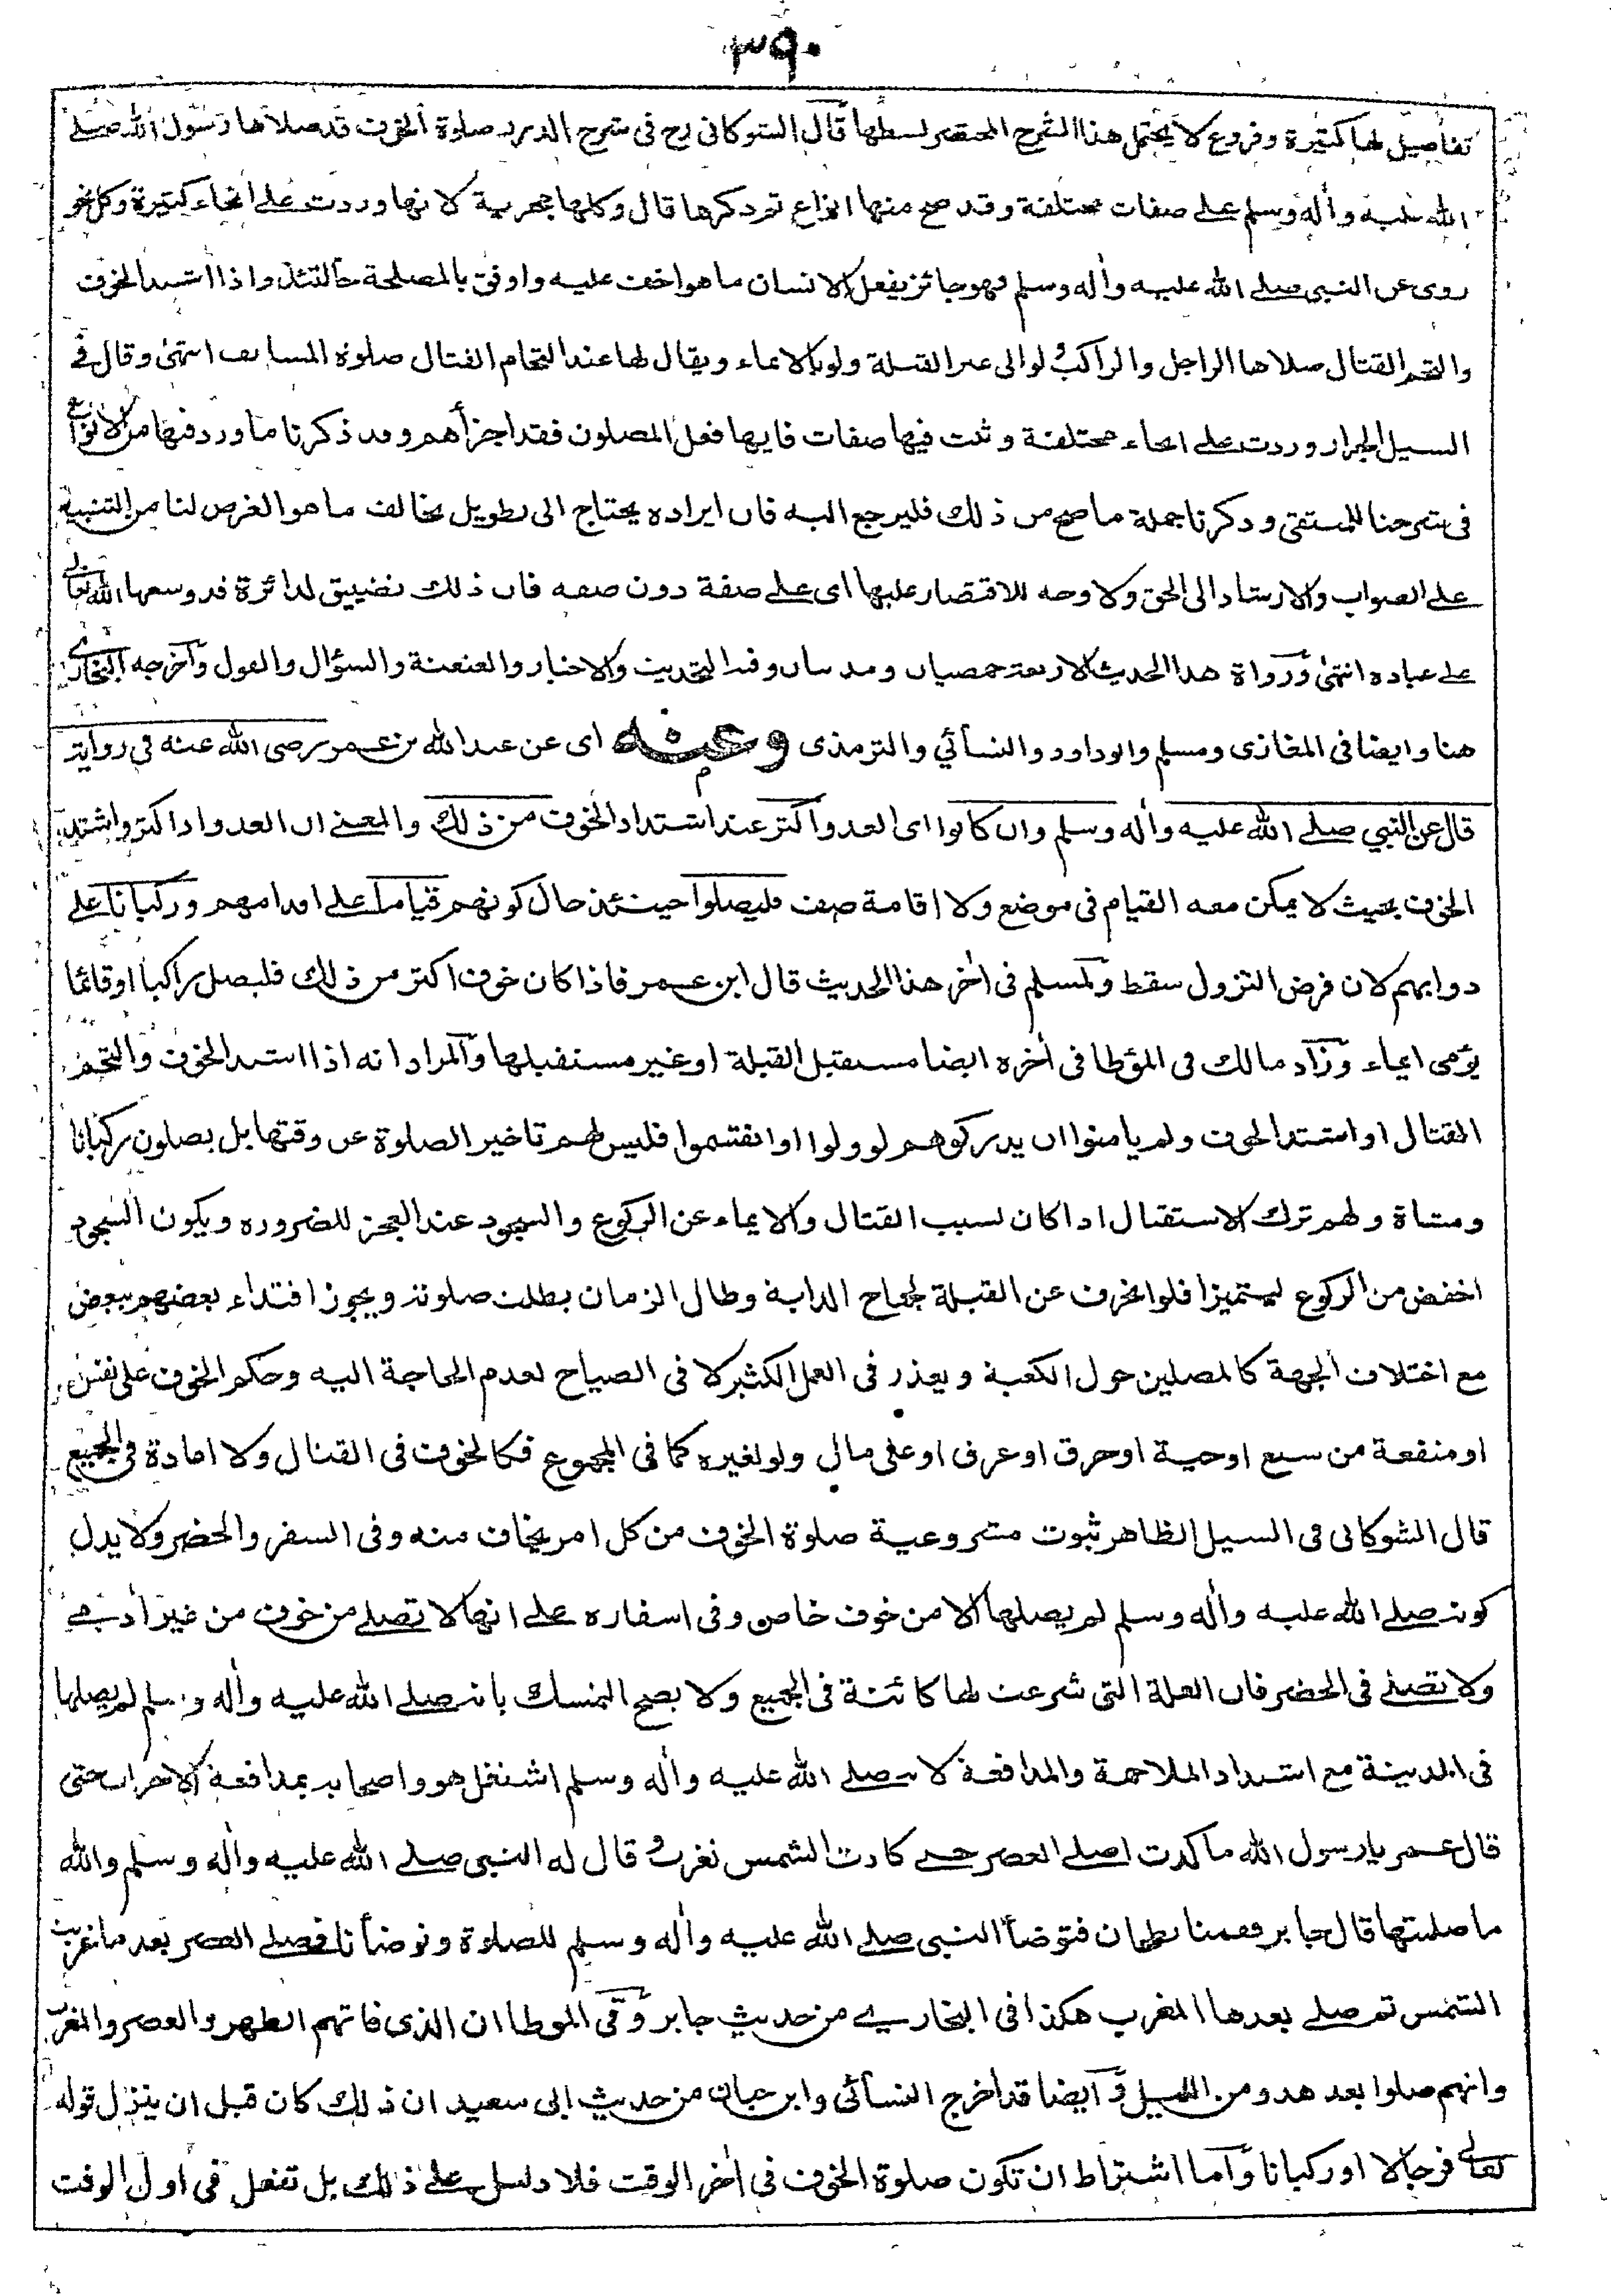 ٣٩٠
تفاصيل لها كثيرة وفروع لا يحتمل هذا الشرح المختصر لبسطها قال الشوكاني رح في شرح الدرر صلوة الخوف قد صلاها رسول الله صلى
الله عليه واله وسلم على صفات مختلفة وقد صح منها انواع ثم ذكرها قال وكلها مجزية لانها وردت على انحاء كثيرة وكل نحو
روى عن النبي صلى الله عليه واله وسلم فهو جائز يفعل الانسان ما هو اخف عليه واوفق بالمصلحة حالتئذ واذا اشتد الخوف
والتحم القتال صلاها الراجل والراكب ولو الى غير القبلة ولو بالايماء ويقال لها عند التحام القتال صلوة المسايف انتهى وقال في
السيل الجرار وردت على انحاء مختلفة وثبت فيها صفات فايها فعل المصلون فقد اجزأهم وقد ذكرنا ما ورد فيها من الانواع
في شرحنا للمنتقى وذكرنا جملة ما صح من ذلك فليرجع اليه فان ايراده يحتاج الى تطويل يخالف ما هو الغرض لنا من التنبيه
على الصواب والارشاد الى الحق ولا وجه للاقتصار عليها اى على صفة دون صفه فان ذلك تضييق لدائرة قد وسعها الله تعالى
على عباده انتهى ورواة هذا الحديث الاربعة حمصيان ومدنيان وفيه التحديث والاخبار والعنعنة والسؤال والقول واخرجه البخارى
هنا وايضا فى المغازى ومسلم وابوداود والنسائي والترمذى وعنه اى عن عبدالله بن عمر رضى الله عنه في رواية
قال عن النبي صلى الله عليه واله وسلم وان كانوا اى العدو اكثر عند اشتداد الخوف من ذلك والمعنى ان العدو اذا كثر واشتد
الخوف بحيث لا يمكن معه القيام فى موضع ولا اقامة صف فليصلوا حينئذ حال كونهم قياما على اقدامهم وركبانا على
دوابهم لان فرض النزول سقط ولمسلم فى اخر هذا الحديث قال ابن عمر فاذا كان خوف اكثر من ذلك فليصل راكبا او قائما
يؤمى ايماء وزاد مالك فى المؤطا فى اخره ايضا مستقبل القبلة او غير مستقبلها والمراد انه اذا اشتد الخوف والتحم
القتال او اشتد الخوف ولم يامنوا ان يدركوهم لو ولوا او انقسموا فليس لهم تاخير الصلوة عن وقتها بل يصلون ركبانا
ومشاة ولهم ترك الاستقبال اذا كان لسبب القتال والايماء عن الركوع والسجود عند العجز للضروره ويكون السجود
اخفض من الركوع ليتميزا فلو انحرف عن القبلة لجماح الدابة وطال الزمان بطلت صلوته ويجوز اقتداء بعضهم ببعض
مع اختلاف الجهة كالمصلين حول الكعبة ويعذر فى العمل الكثير لا فى الصياح لعدم الحاجة اليه وحكم الخوف على نفس
او منفعة من سبع او حية او حرق او غرق او على مال ولو لغيره كما فى المجموع فكالخوف فى القتال ولا اعادة فى الجميع
قال الشوكانى فى السيل الظاهر ثبوت مشروعية صلوة الخوف من كل امر يخاف منه وفى السفر والحضر ولا يدل
كونه صلى الله عليه واله وسلم لم يصلها الا من خوف خاص وفى اسفاره على انها لا تصلى من خوف من غير آدمى
ولا تصلى فى الحضر فان العلة التى شرعت لها كائنة فى الجميع ولا يصح التمسك بانه صلى الله عليه واله وسلم لم يصلها
فى المدينة مع اشتداد الملاحمة والمدافعة لانه صلى الله عليه واله وسلم اشتغل هو واصحابه بمدافعة الاحزاب حتى
قال عمر يا رسول الله ما كدت اصلى العصر حتى كادت الشمس تغرب قال له النبى صلى الله عليه واله وسلم والله
ما صليتها قال جابر فقمنا بطحان فتوضأ النبى صلى الله عليه واله وسلم للصلوة وتوضأنا فصلى العصر بعد ما غربت
الشمس ثم صلى بعدها المغرب هكذا فى البخارى من حديث جابر وفى الموطا ان الذى فاتهم الظهر والعصر والمغرب
وانهم صلوا بعد هدو من الليل وايضا قد اخرج النسائى وابن حبان من حديث ابى سعيد ان ذلك كان قبل ان ينزل قوله
تعالى فرجالا او ركبانا واما اشتراط ان تكون صلوة الخوف فى اخر الوقت فلا دليل على ذلك بل تفعل فى اول الوقت